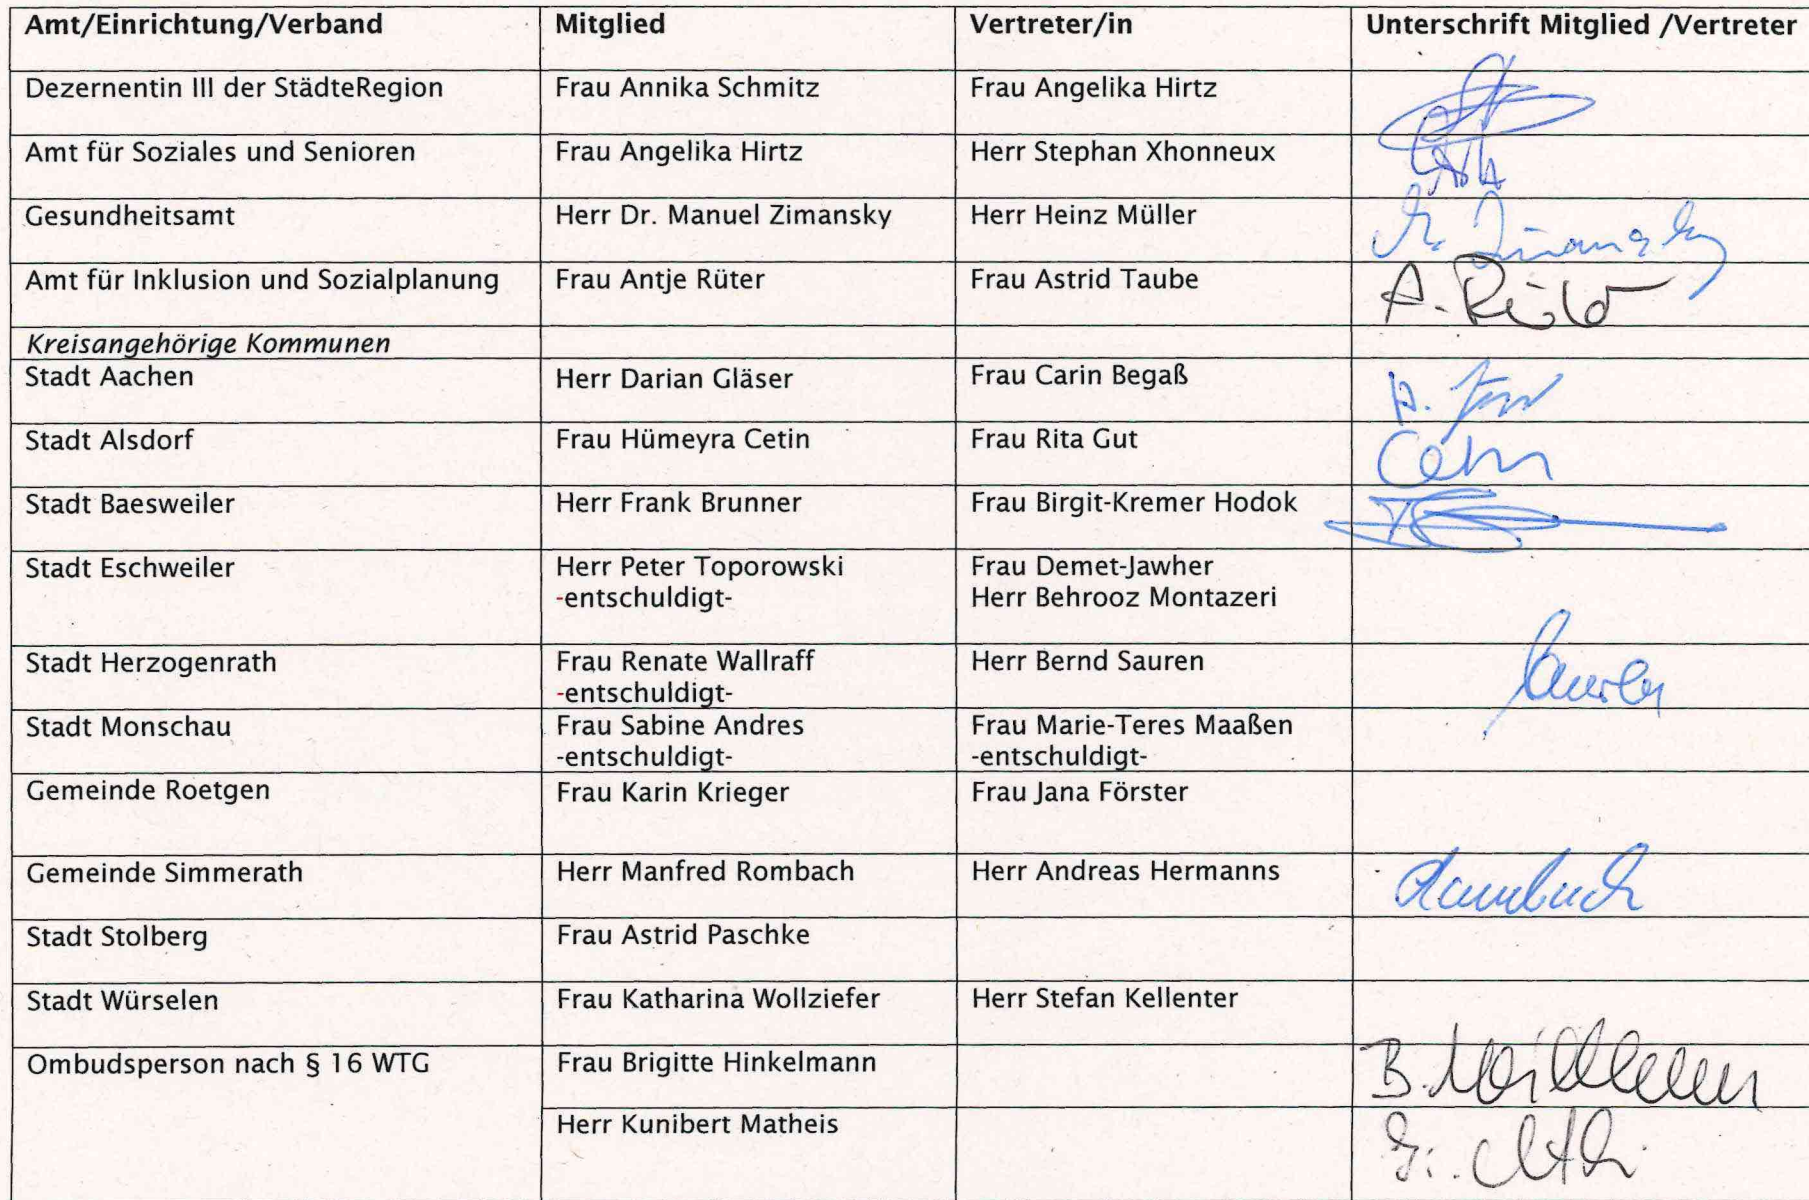 Amt/Einrichtung/Verband Mitglied Vertreter/in Unterschrift Mitglied /Vertreter
Dezernentin III der StädteRegion Frau Annika Schmitz Frau Angelika Hirtz
Amt für Soziales und Senioren Frau Angelika Hirtz Herr Stephan Xhonneux
Gesundheitsamt Herr Dr. Manuel Zimansky Herr Heinz Müller M. Zimansky
Amt für Inklusion und Sozialplanung Frau Antje Rüter Frau Astrid Taube A. Rüter
Kreisangehörige Kommunen
Stadt Aachen Herr Darian Gläser Frau Carin Begaß
Stadt Alsdorf Frau Hümeyra Cetin Frau Rita Gut Cetin
Stadt Baesweiler Herr Frank Brunner Frau Birgit-Kremer Hodok
Stadt Eschweiler Herr Peter Toporowski Frau Demet-Jawher
-entschuldigt- Herr Behrooz Montazeri
Stadt Herzogenrath Frau Renate Wallraff Herr Bernd Sauren Sauren
-entschuldigt-
Stadt Monschau Frau Sabine Andres Frau Marie-Teres Maaßen
-entschuldigt- -entschuldigt-
Gemeinde Roetgen Frau Karin Krieger Frau Jana Förster
Gemeinde Simmerath Herr Manfred Rombach Herr Andreas Hermanns Rombach
Stadt Stolberg Frau Astrid Paschke
Stadt Würselen Frau Katharina Wollziefer Herr Stefan Kellenter
Ombudsperson nach § 16 WTG Frau Brigitte Hinkelmann B.
Herr Kunibert Matheis